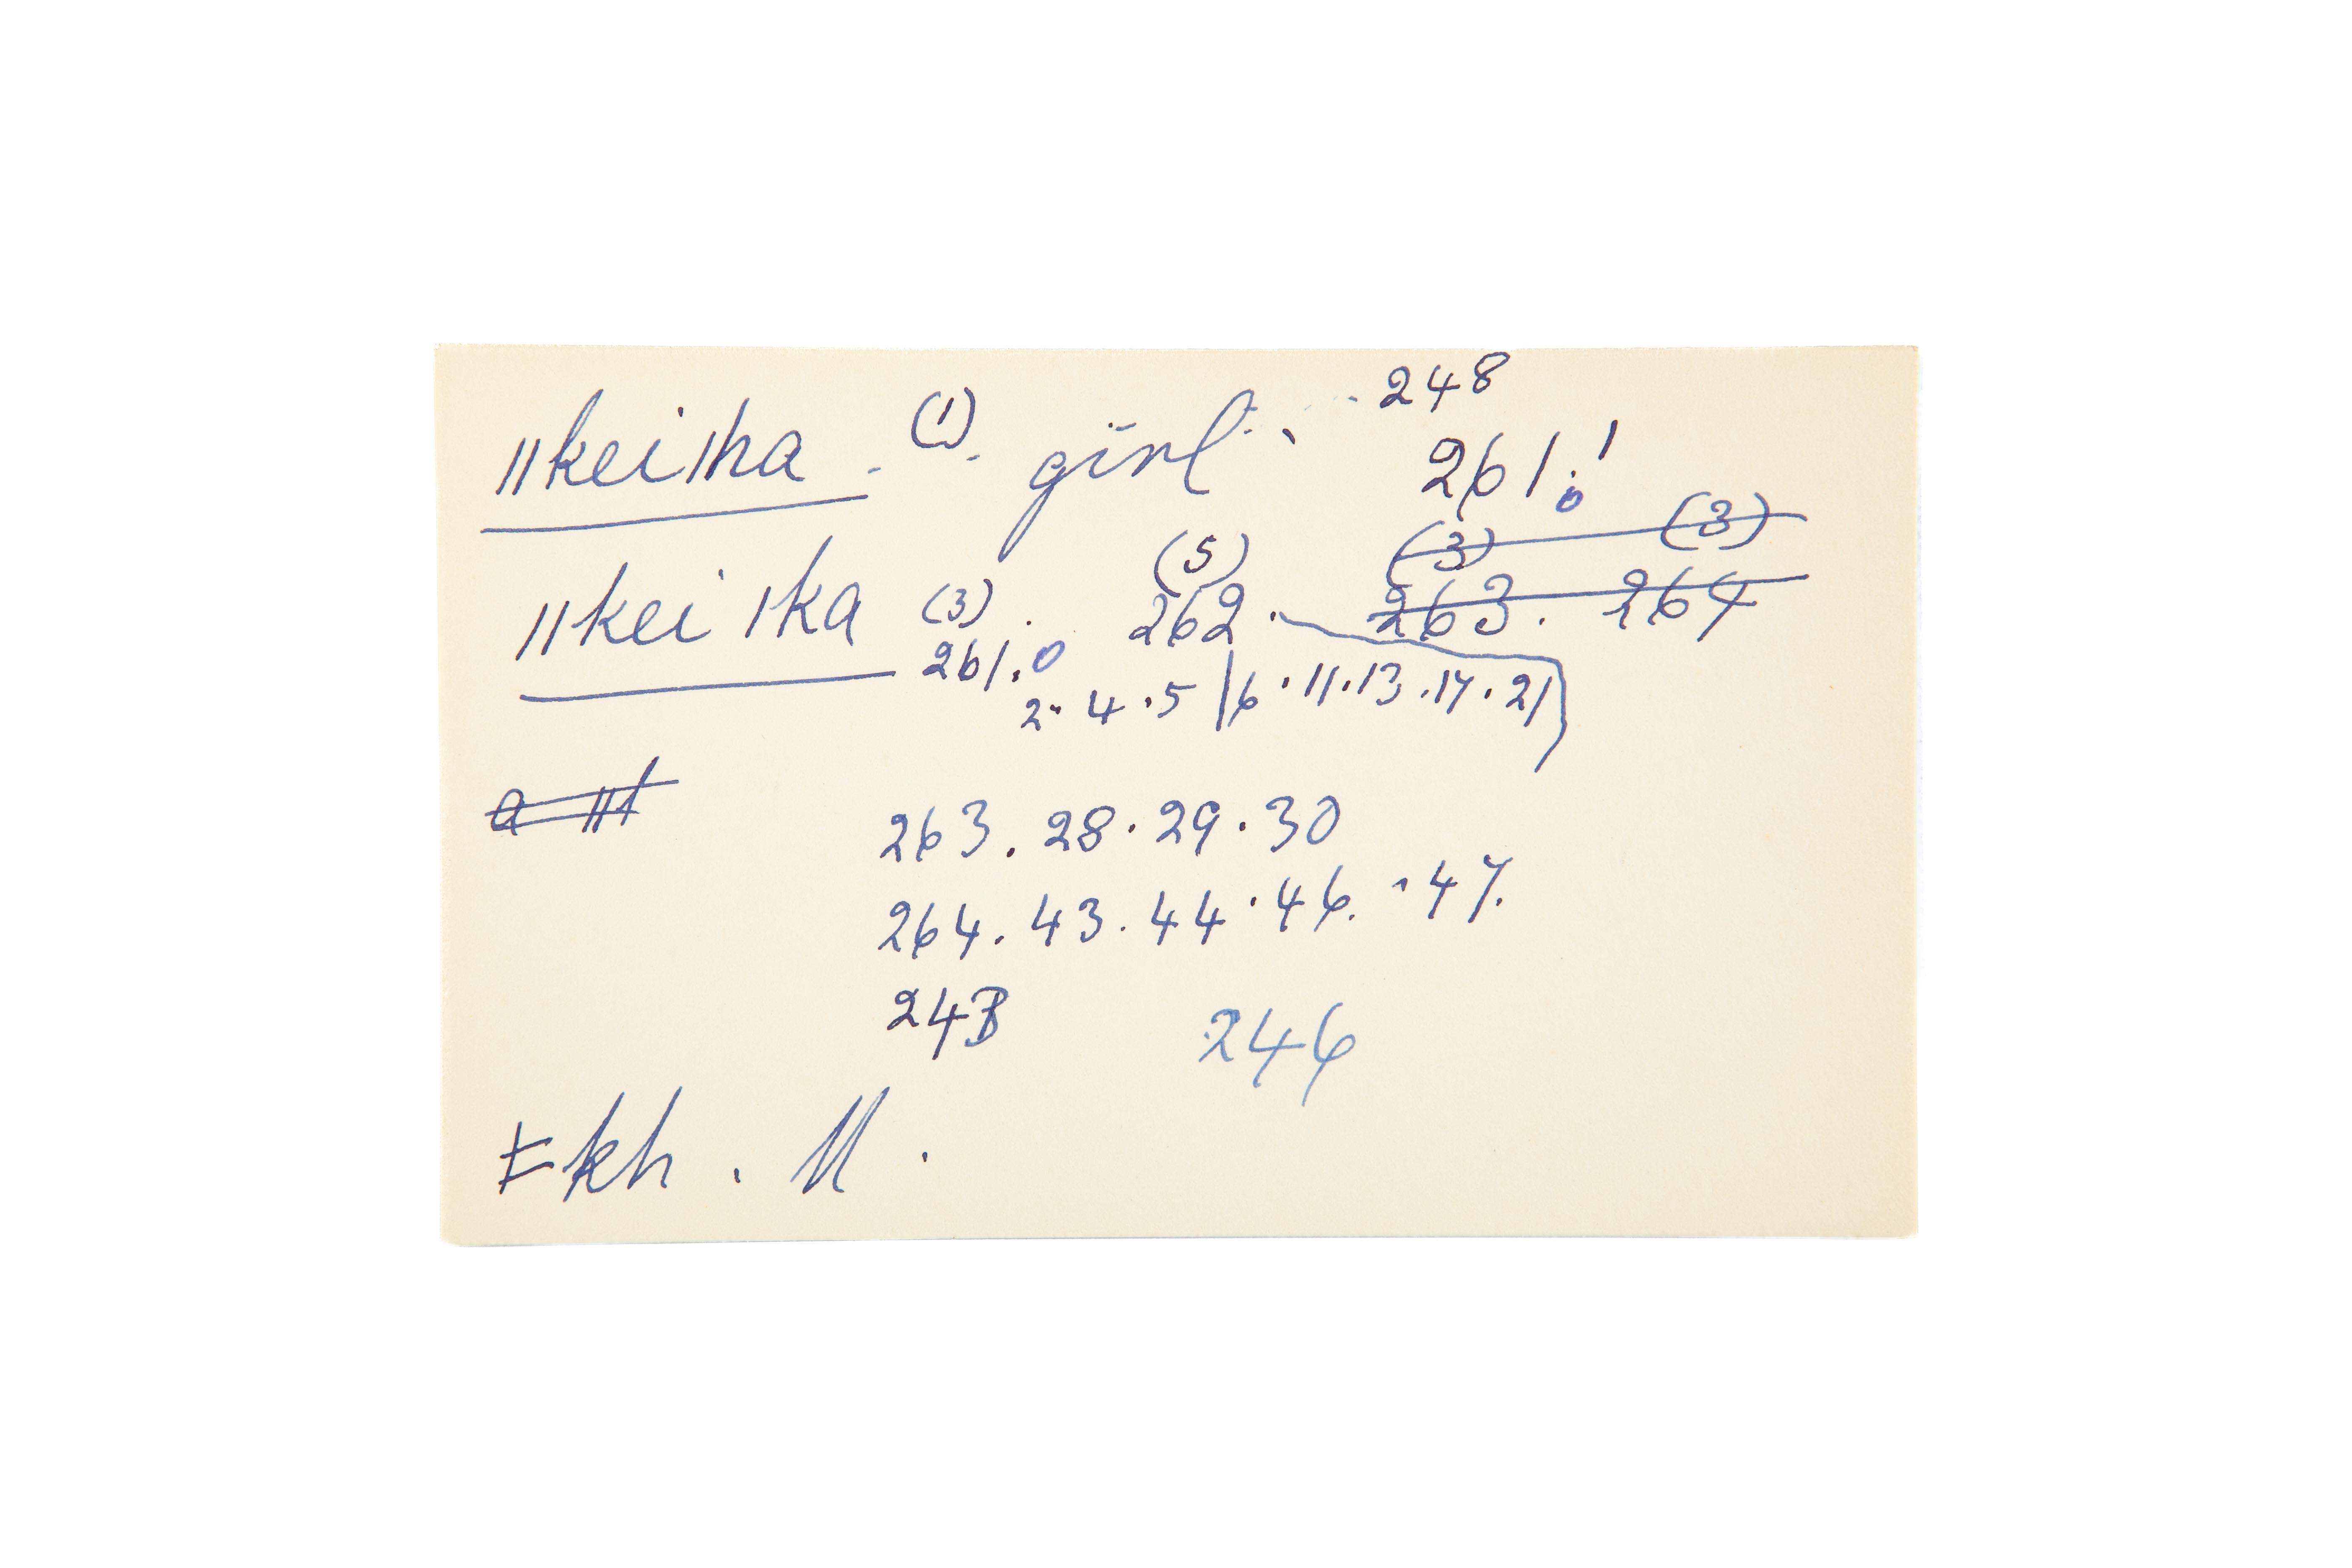 248
ǁkeiǁha . (1) . girl . 261.1
0
(5) (3) (3)
ǁkei ǀka (3) . 262 . 263 . 264
261.0
2 . 4 . 5 | 6 . 11 . 13 . 17 . 21
263 . 28 . 29 . 30
264 . 43 . 44 . 46 . 47.
243 246
ǂkh . ǁ .